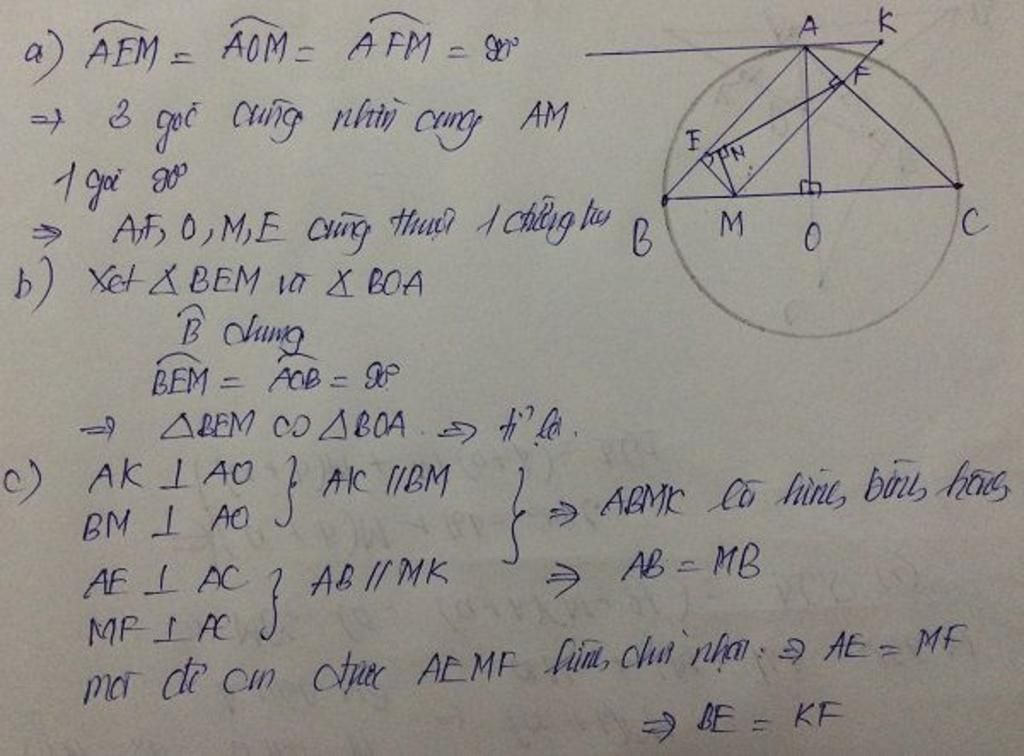 a) AEM = AOM = AFM = 90°
⇒ 3 góc cùng nhìn cung AM
1 góc 90°
⇒ A,F, O, M, E cùng thuộc 1 đường tròn
b) Xét Δ BEM và Δ BOA
B chung
BEM = AOB = 90°
⇒ ΔBEM ∽ ΔBOA ⇒ tỉ lệ.
c) AK ⊥ AO } AK // BM } ⇒ ABMK là hình bình hành
BM ⊥ AO
AE ⊥ AC } AB // MK ⇒ AB = MB
MF ⊥ AC
mà dễ cm được AEMF hình chữ nhật ⇒ AE = MF
⇒ BE = KF
A
K
F
E
N
B
M
O
C